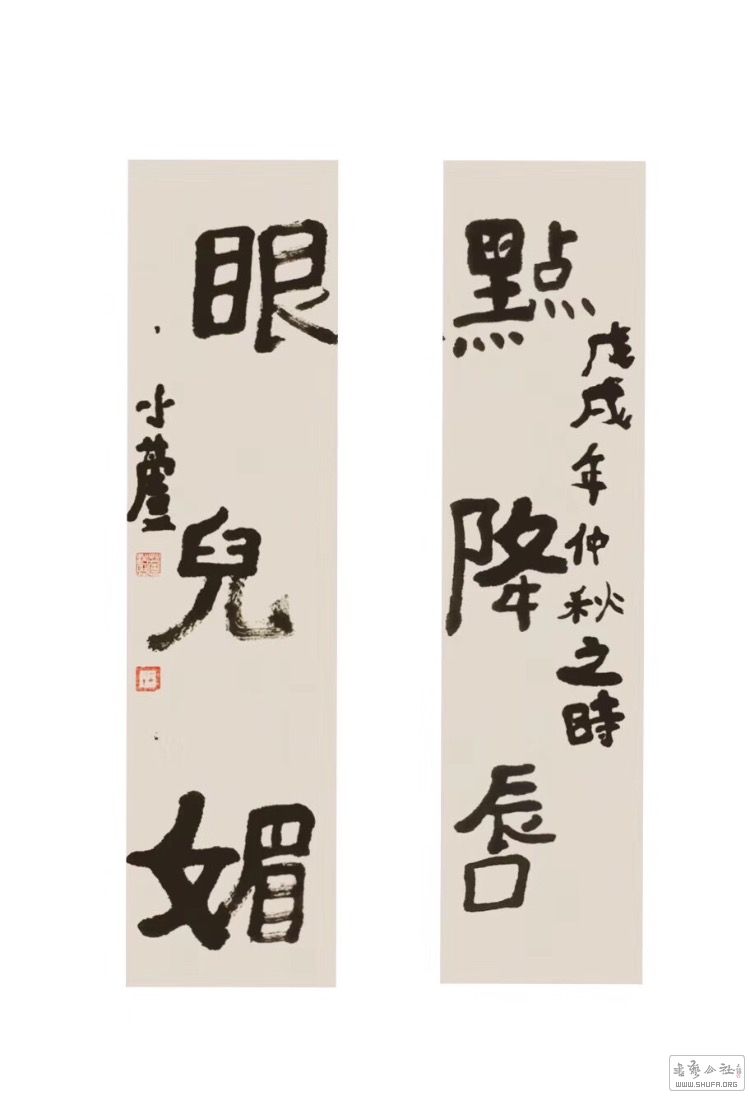 點降唇
戊戌年仲秋之時
眼兒媚
小蘆
WWW.SHUFA.ORG